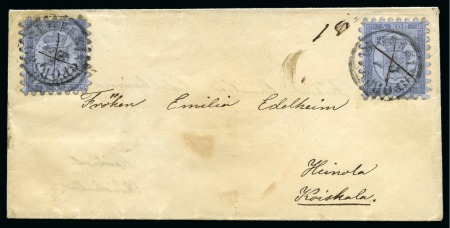 18
Fröken Emilia Edelheim
Heinola
Koiskala.